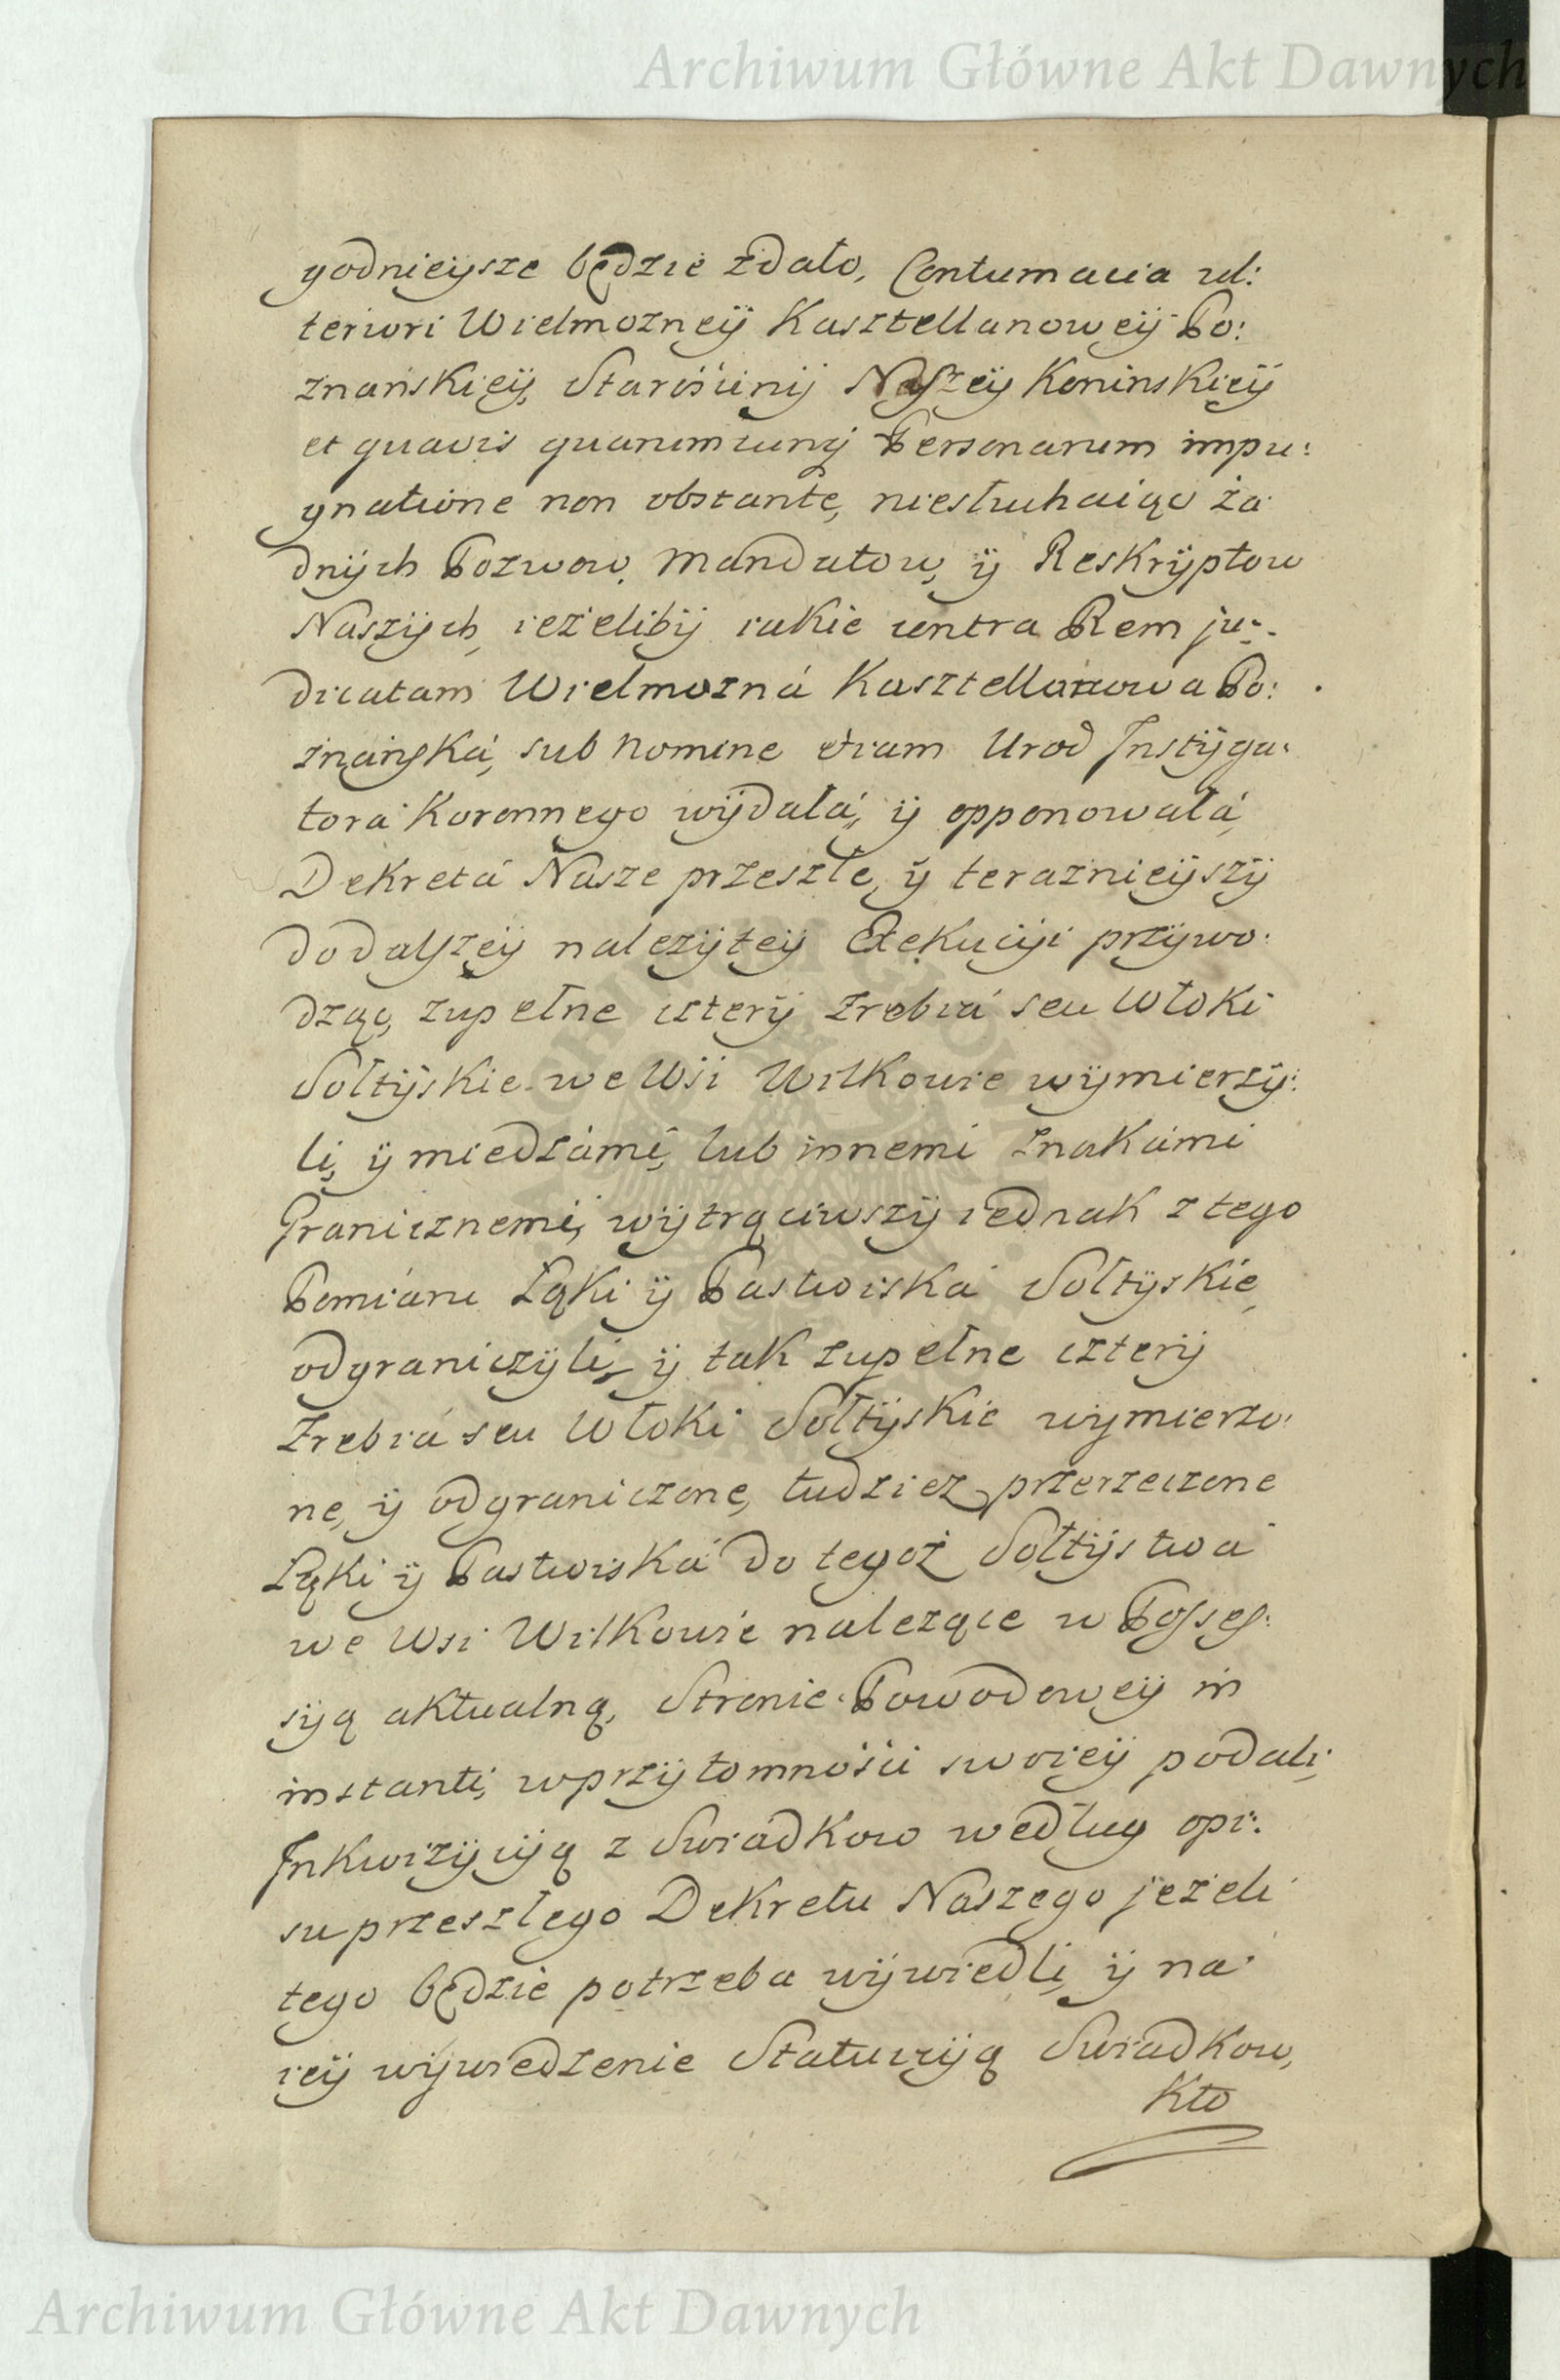 Archiwum Główne Akt Dawnych
godnieÿsze będzie zdało, Contumacia ul:
teriori Wielmozneÿ Kasztellanoweÿ Po:
znańskieÿ, Starośćinÿ Naszeÿ Koninskieÿ
et quavis quarumcunq Personarum impu:
gnatione non obstante, niesłuchaiąc ża
dnÿch Pozwow, Mandatow, ÿ Reskrÿptow
Naszÿch, ieżelibÿ iakie contra Rem ju:
dicatam Wielmozná Kasztellanowa Po:
znańská, sub Nomine etiam Urod Instÿga:
torá Koronnego wÿdałá, ÿ opponowałá,
Dekretá Nasze przeszłe, ÿ terazniejszÿ
do dalszeÿ nalezÿteÿ Exekucÿi przÿwo:
dząc, zupełne czterÿ Zrebiá seu Włoki
Sołtÿskie we Wśi Wilkowie wÿmierzÿ:
li, ÿ miedzámi, lub innemi Znakámi
Granicznemi, wÿtrąciwszÿ iednak z tego
Pomiáru Łąki ÿ Pastwiská Sołtÿskie,
odgraniczÿli, ÿ tak zupełne czterÿ
Zrebiá seu Włoki Sołtÿskie wÿmierzo:
ne, ÿ odgraniczone, tudziez przerzeczone
Łąki ÿ Pastwiská do tegoż Sołtÿstwá
we Wsi Wilkowie nalezące w Posses:
sÿą aktualną, Stronie Powodoweÿ in
instanti, w przÿtomnośći swoieÿ podali,
Inkwizÿcÿą z Swiádkow według opi:
su przeszłego Dekretu Naszego jeżeli
tego będzie potrzeba wÿwiedli, ÿ na
ieÿ wÿwiedzenie Statucÿą Swiadkow,
Kto
Archiwum Główne Akt Dawnych